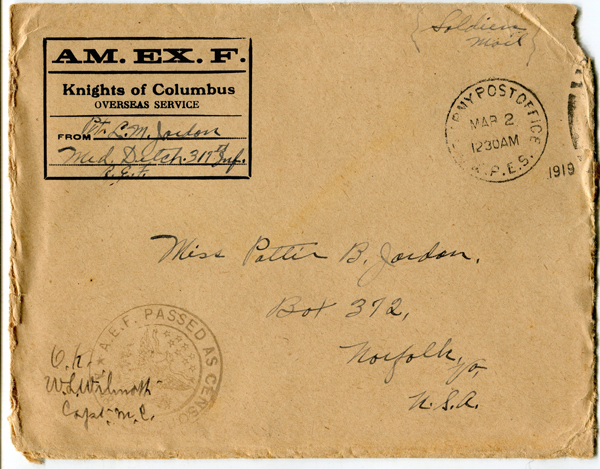 { Soldiers
Mail }
AM. EX. F.
Knights of Columbus
OVERSEAS SERVICE
FROM Pvt. L. M. Jordan
Med. Detch. 317th Inf.
A.E.F.
ARMY POST OFFICE
MAR 2
1230AM
P.E.S.
1919
Miss Potter B. Jordan,
Box 372,
Norfolk, Va,
U.S.A.
A.E.F. PASSED AS CENSO
O.K.
Capt. M.C.